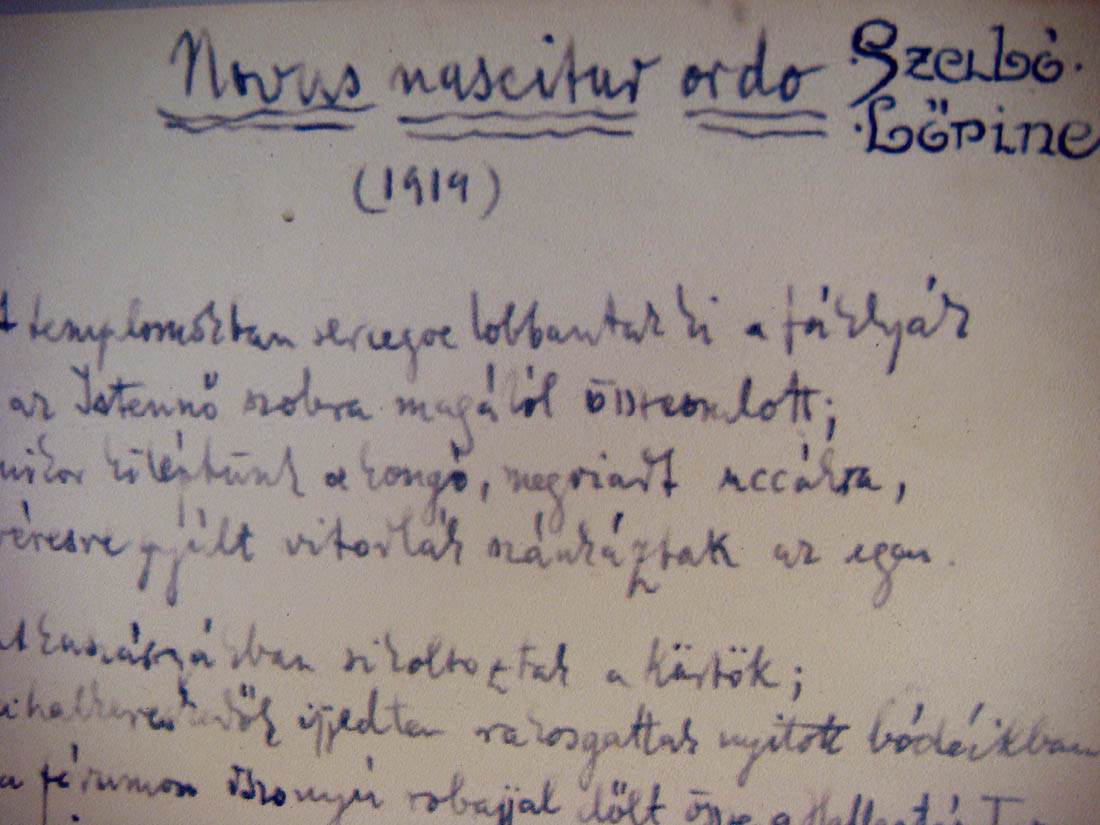 Novus nascitur ordo Szabó
Lőrinc
(1919)
A templomokban sercegve lobbantak ki a fáklyák
az Istennő szobra magától összeomlott;
mikor kiléptünk a kongó, megriadt uccákra,
véresre gyúlt vitorlák szánkáztak az egen.
A kaszárnyákban sikoltoztak a kürtök;
a halkereskedők ijedten rakosgattak nyitott bódéikban
a fórumon iszonyú robajjal dőlt össze a